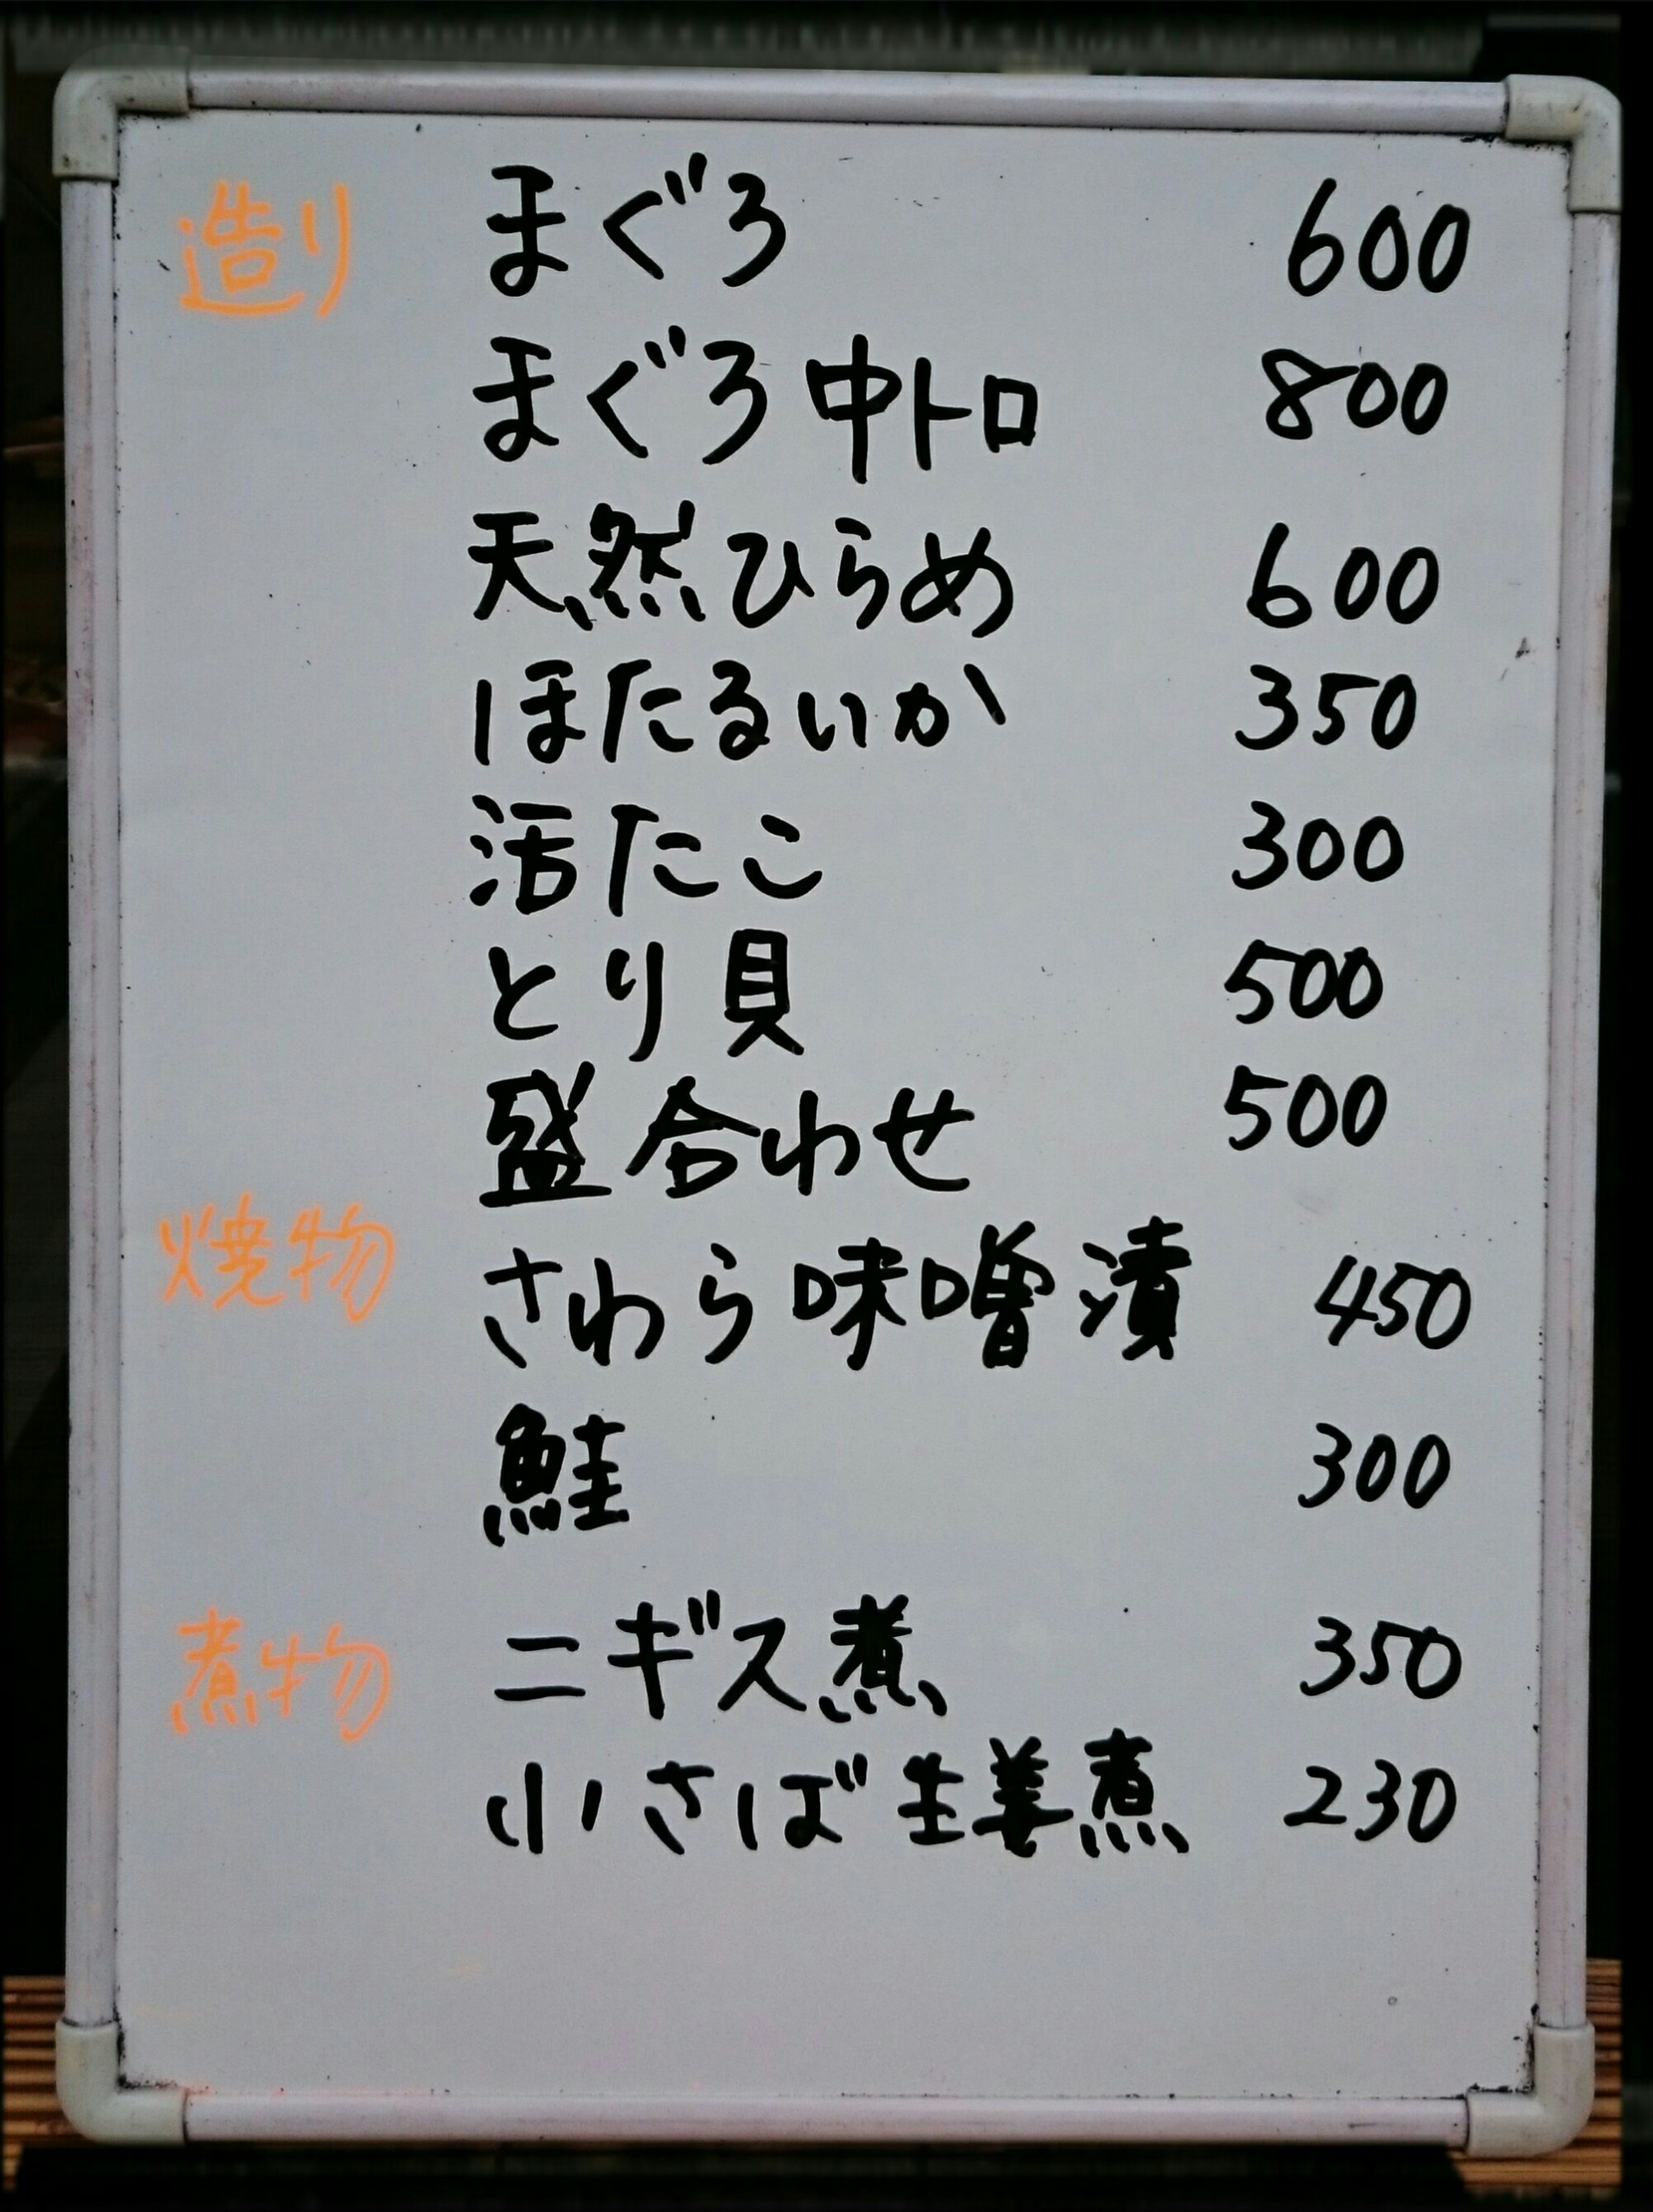 造り まぐろ 600
まぐろ中トロ 800
天然ひらめ 600
ほたるいか 350
活たこ 300
とり貝 500
盛合わせ 500
焼物 さわら味噌漬 450
鮭 300
煮物 ニギス煮 350
小さば生姜煮 230